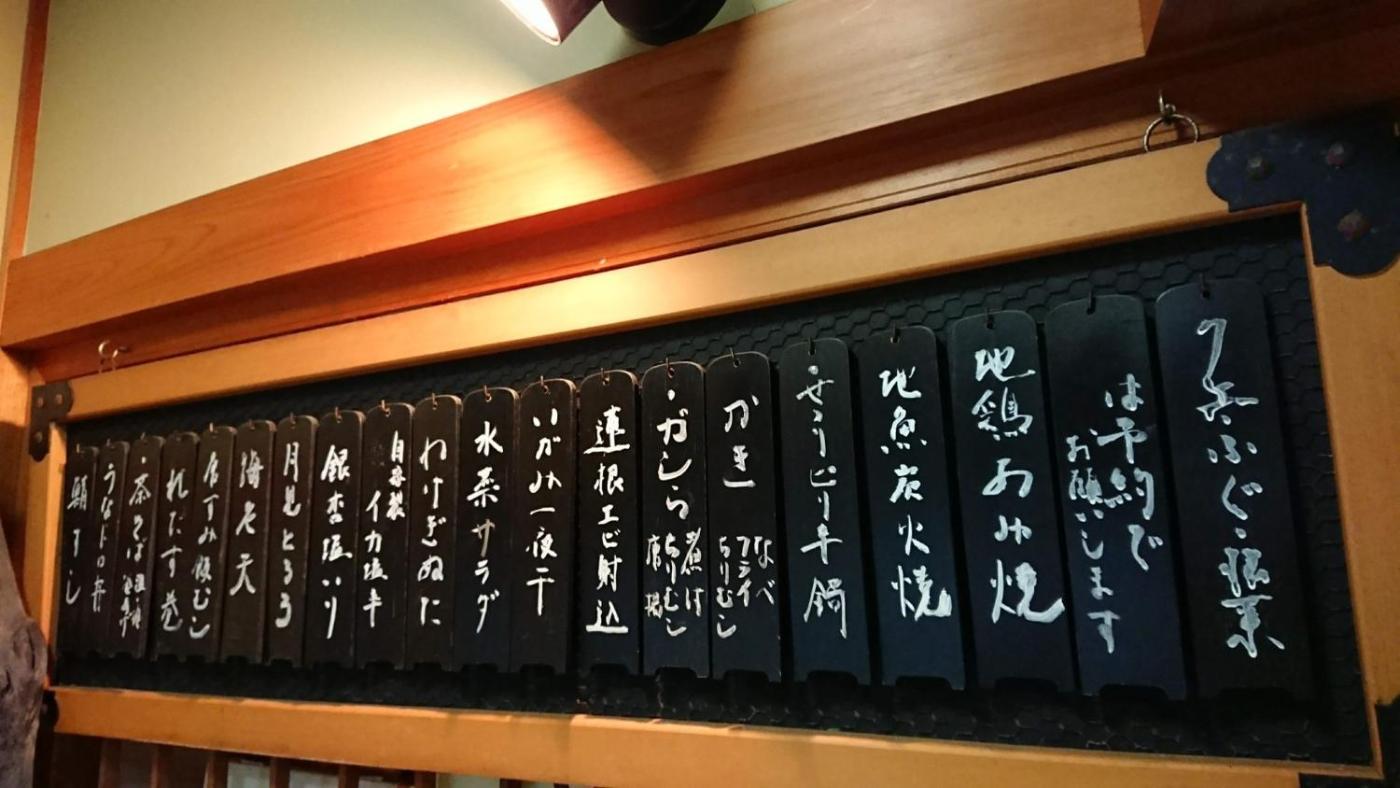 は予約で
お願いします
地鶏あみ焼
地魚炭火焼
・せり牛鍋
かき
なべ
フライ
ちりむし
・ガシら
煮付
ちりむし
唐揚
蓮根エビ射込
いかみ一夜干
水菜サラダ
わけぎぬた
自家製
イカ塩辛
銀杏塩いり
月見とろろ
海老天
れたす巻
・茶そば
うなトロ丼
鯖すし